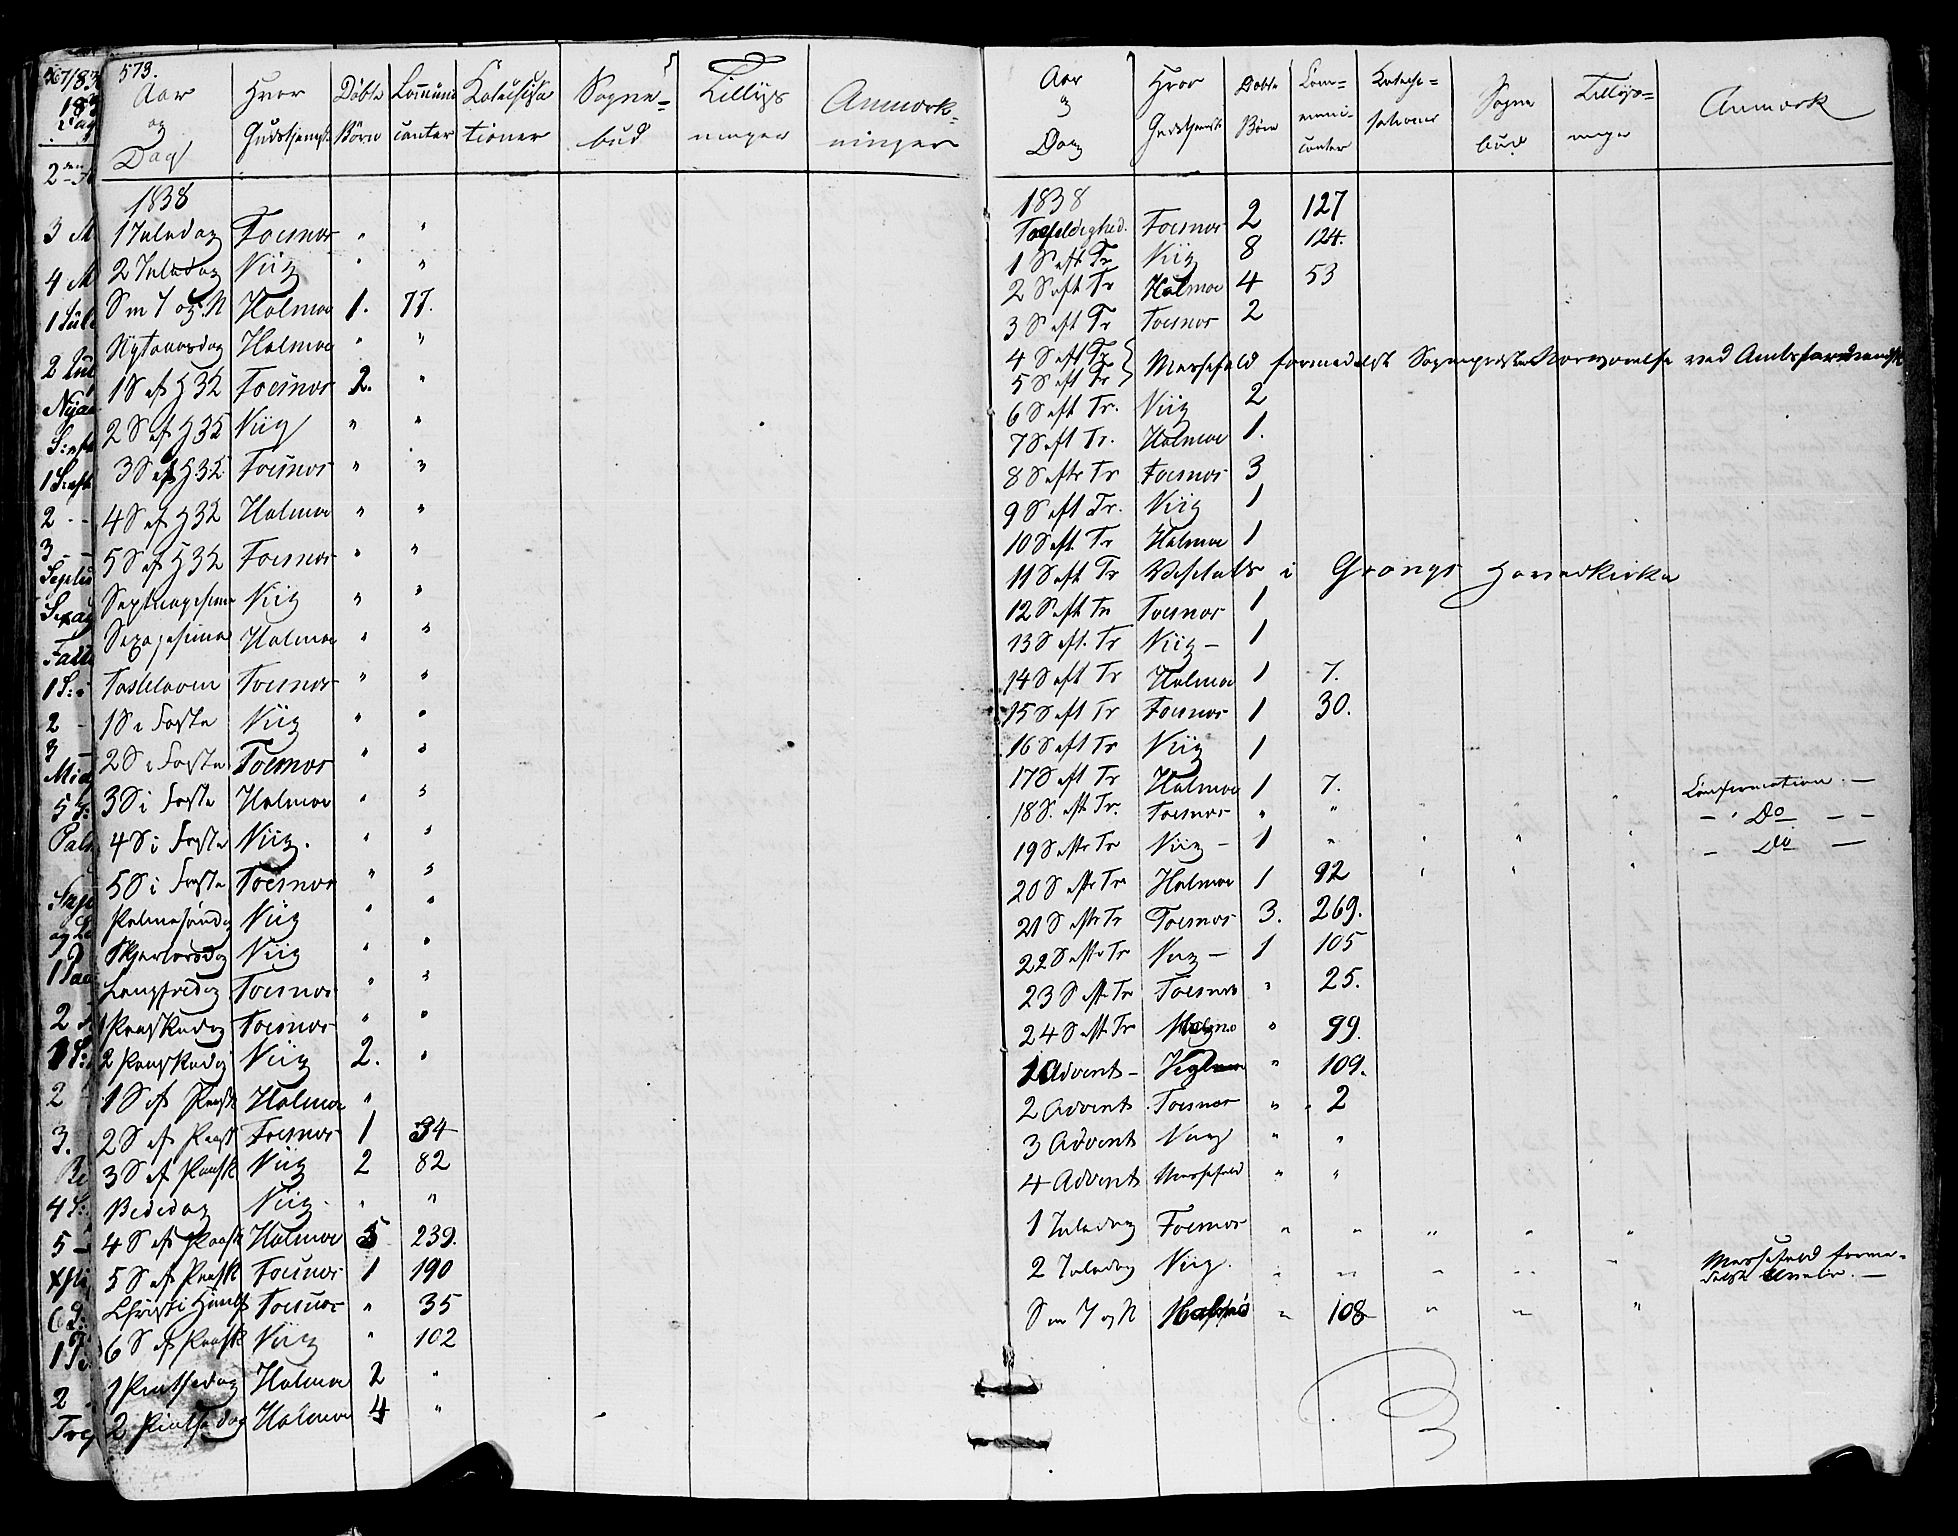 573.
Aar og Dag | Hvor Gudstjeneste | Døbte Børn | Communicanter | Catechisationer | Sognebud | Tillysninger | Anmærkninger
1838
1 Juledag Foesnæs " "
2 Juledag Viig " "
S m J og N Holmøe 1. 77.
Nytaarsdag Holmøe " "
1 S ef H 3 K Foesnæs 2. "
2 S ef H 3 K Viig " "
3 S ef H 3 K Foesnæs " "
4 S ef H 3 K Holmøe " "
5 S ef H 3 K Foesnæs " "
Septuagesima Viig " "
Sexagesima Holmøe " "
Fastelaven Foesnæs " "
1 S i Faste Viig " "
2 S i Faste Foesnæs " "
3 S i Faste Holmøe " "
4 S i Faste Viig. " "
5 S i Faste Foesnæs " "
Palmesøndag Viig " "
Skjertorsdag Viig " "
Langfredag Foesnæs " "
1 Paaskedag Foesnæs " "
2 Paaskedag Viig 2. "
1 S ef Paask Holmøe "
2 S ef Paask Foesnæs 1 34
3 S ef Paask Viig 2 82
Bededag Viig " "
4 S ef Paask Holmøe 5 239.
5 S ef Paask Foesnæs 1 190
Christi Himlf Foesnæs " 35
6 S ef Paask Viig " 102
1 Pintsedag Holmøe 2 "
2 Pintsedag Holmøe 4 "
Aar og Dag | Hvor Gudstjeneste | Døbte Børn | Communicanter | Catechisationer | Sognebud | Tillysninger | Anmærk
1838
Trefoldighed. Foesnæs 2 127
1 S eft Tr Viig 8 124.
2 S eft Tr Holmøe 4 53
3 S eft Tr Foesnæs 2
4 S eft Tr
5 S eft Tr } Messefald formedelst Sognepræstens Nærværelse ved Amtsformandsk
6 S eft Tr. Viig 2
7 S eft Tr. Holmøe 1.
8 S eftr Tr Foesnæs 3
9 S eft Tr. Viig 1
10 S eft. Tr Holmøe 1
11 S eft Tr Visitats i Grongs Hovedkirke
12 S eft Tr Foesnæs 1
13 S eft. Tr Viig - 1
14 S eft Tr Holmøe 1 7.
15 S eft Tr Foesnæs 1 30.
16 S eft Tr Viig 1
17 S eft Tr Holmøe 1 7. Confirmation. -
18 S. eft Tr. Foesnæs " " - " Do - -
19 S eftr Tr Viig - 1 " - Do -
20 S eftr Tr Holmøe 1 92
21 S eftr Tr Foesnæs 3. 269.
22 S eftr Tr Viig - 1 105
23 S eftr Tr Foesnæs " 25.
24 S eftr Tr Holmø " 99.
1 Advents - " 109.
2 Advents Foesnæs " 2
3 Advents Viig " "
4 Advents Messefald " "
1 Juledag Foesnæs " " " " "
2 Juledag Viig. " " " " " Messefald formedelst Uveir. -
S m J og N Holmø " 108 " " "